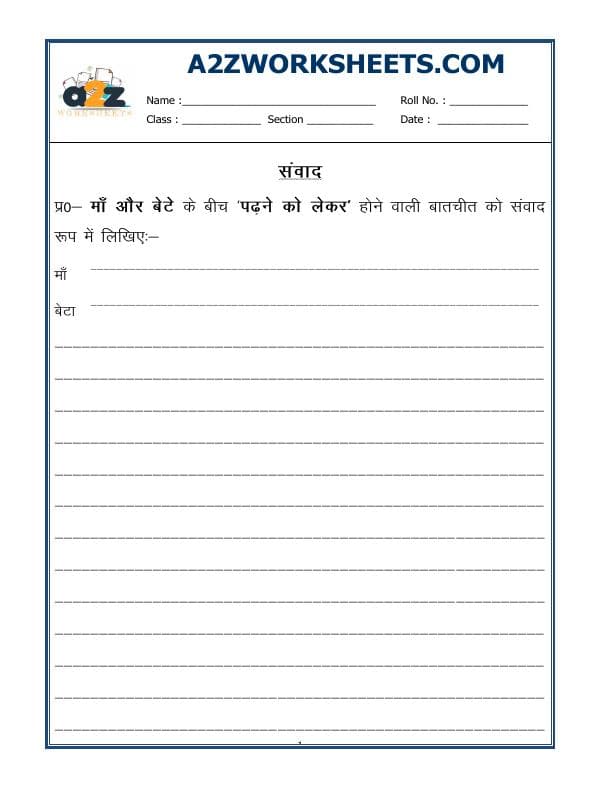 A2ZWORKSHEETS.COM
a2z
WORKSHEETS
Name :____________________________ Roll No. : ____________
Class : ____________ Section __________ Date : ______________
संवाद
प्र0– माँ और बेटे के बीच 'पढ़ने को लेकर' होने वाली बातचीत को संवाद
रूप में लिखिए:–
माँ
बेटा